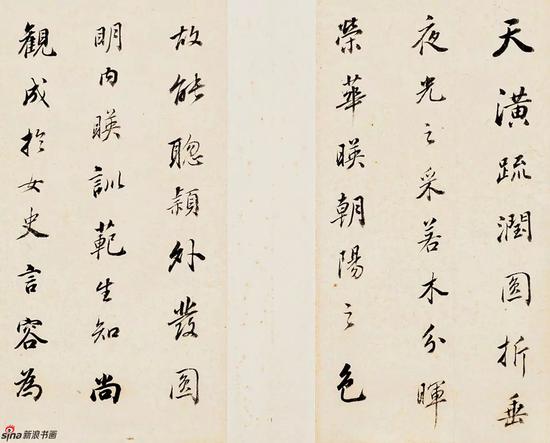 天潢疏潤圓折垂
夜光之采若木分暉
榮華暎朝陽之色
故能聰穎外發圓
明內暎訓範生知尚
觀成於女史言容為
sina新浪书画